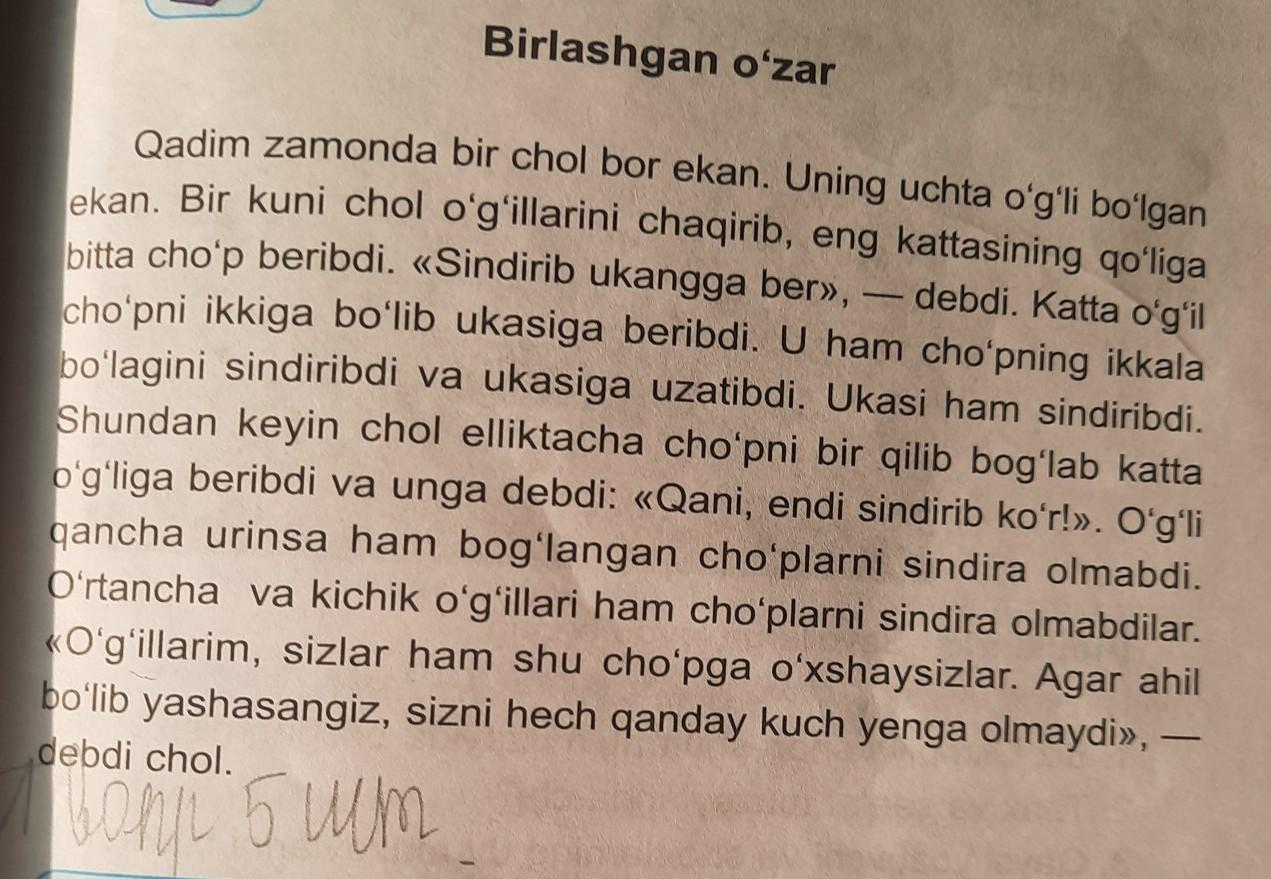 Birlashgan o‘zar
Qadim zamonda bir chol bor ekan. Uning uchta o‘g‘li bo‘lgan
ekan. Bir kuni chol o‘g‘illarini chaqirib, eng kattasining qo‘liga
bitta cho‘p beribdi. «Sindirib ukangga ber», — debdi. Katta o‘g‘il
cho‘pni ikkiga bo‘lib ukasiga beribdi. U ham cho‘pning ikkala
bo‘lagini sindiribdi va ukasiga uzatibdi. Ukasi ham sindiribdi.
Shundan keyin chol elliktacha cho‘pni bir qilib bog‘lab katta
o‘g‘liga beribdi va unga debdi: «Qani, endi sindirib ko‘r!». O‘g‘li
qancha urinsa ham bog‘langan cho‘plarni sindira olmabdi.
O‘rtancha va kichik o‘g‘illari ham cho‘plarni sindira olmabdilar.
«O‘g‘illarim, sizlar ham shu cho‘pga o‘xshaysizlar. Agar ahil
bo‘lib yashasangiz, sizni hech qanday kuch yenga olmaydi», —
debdi chol.
5 шт